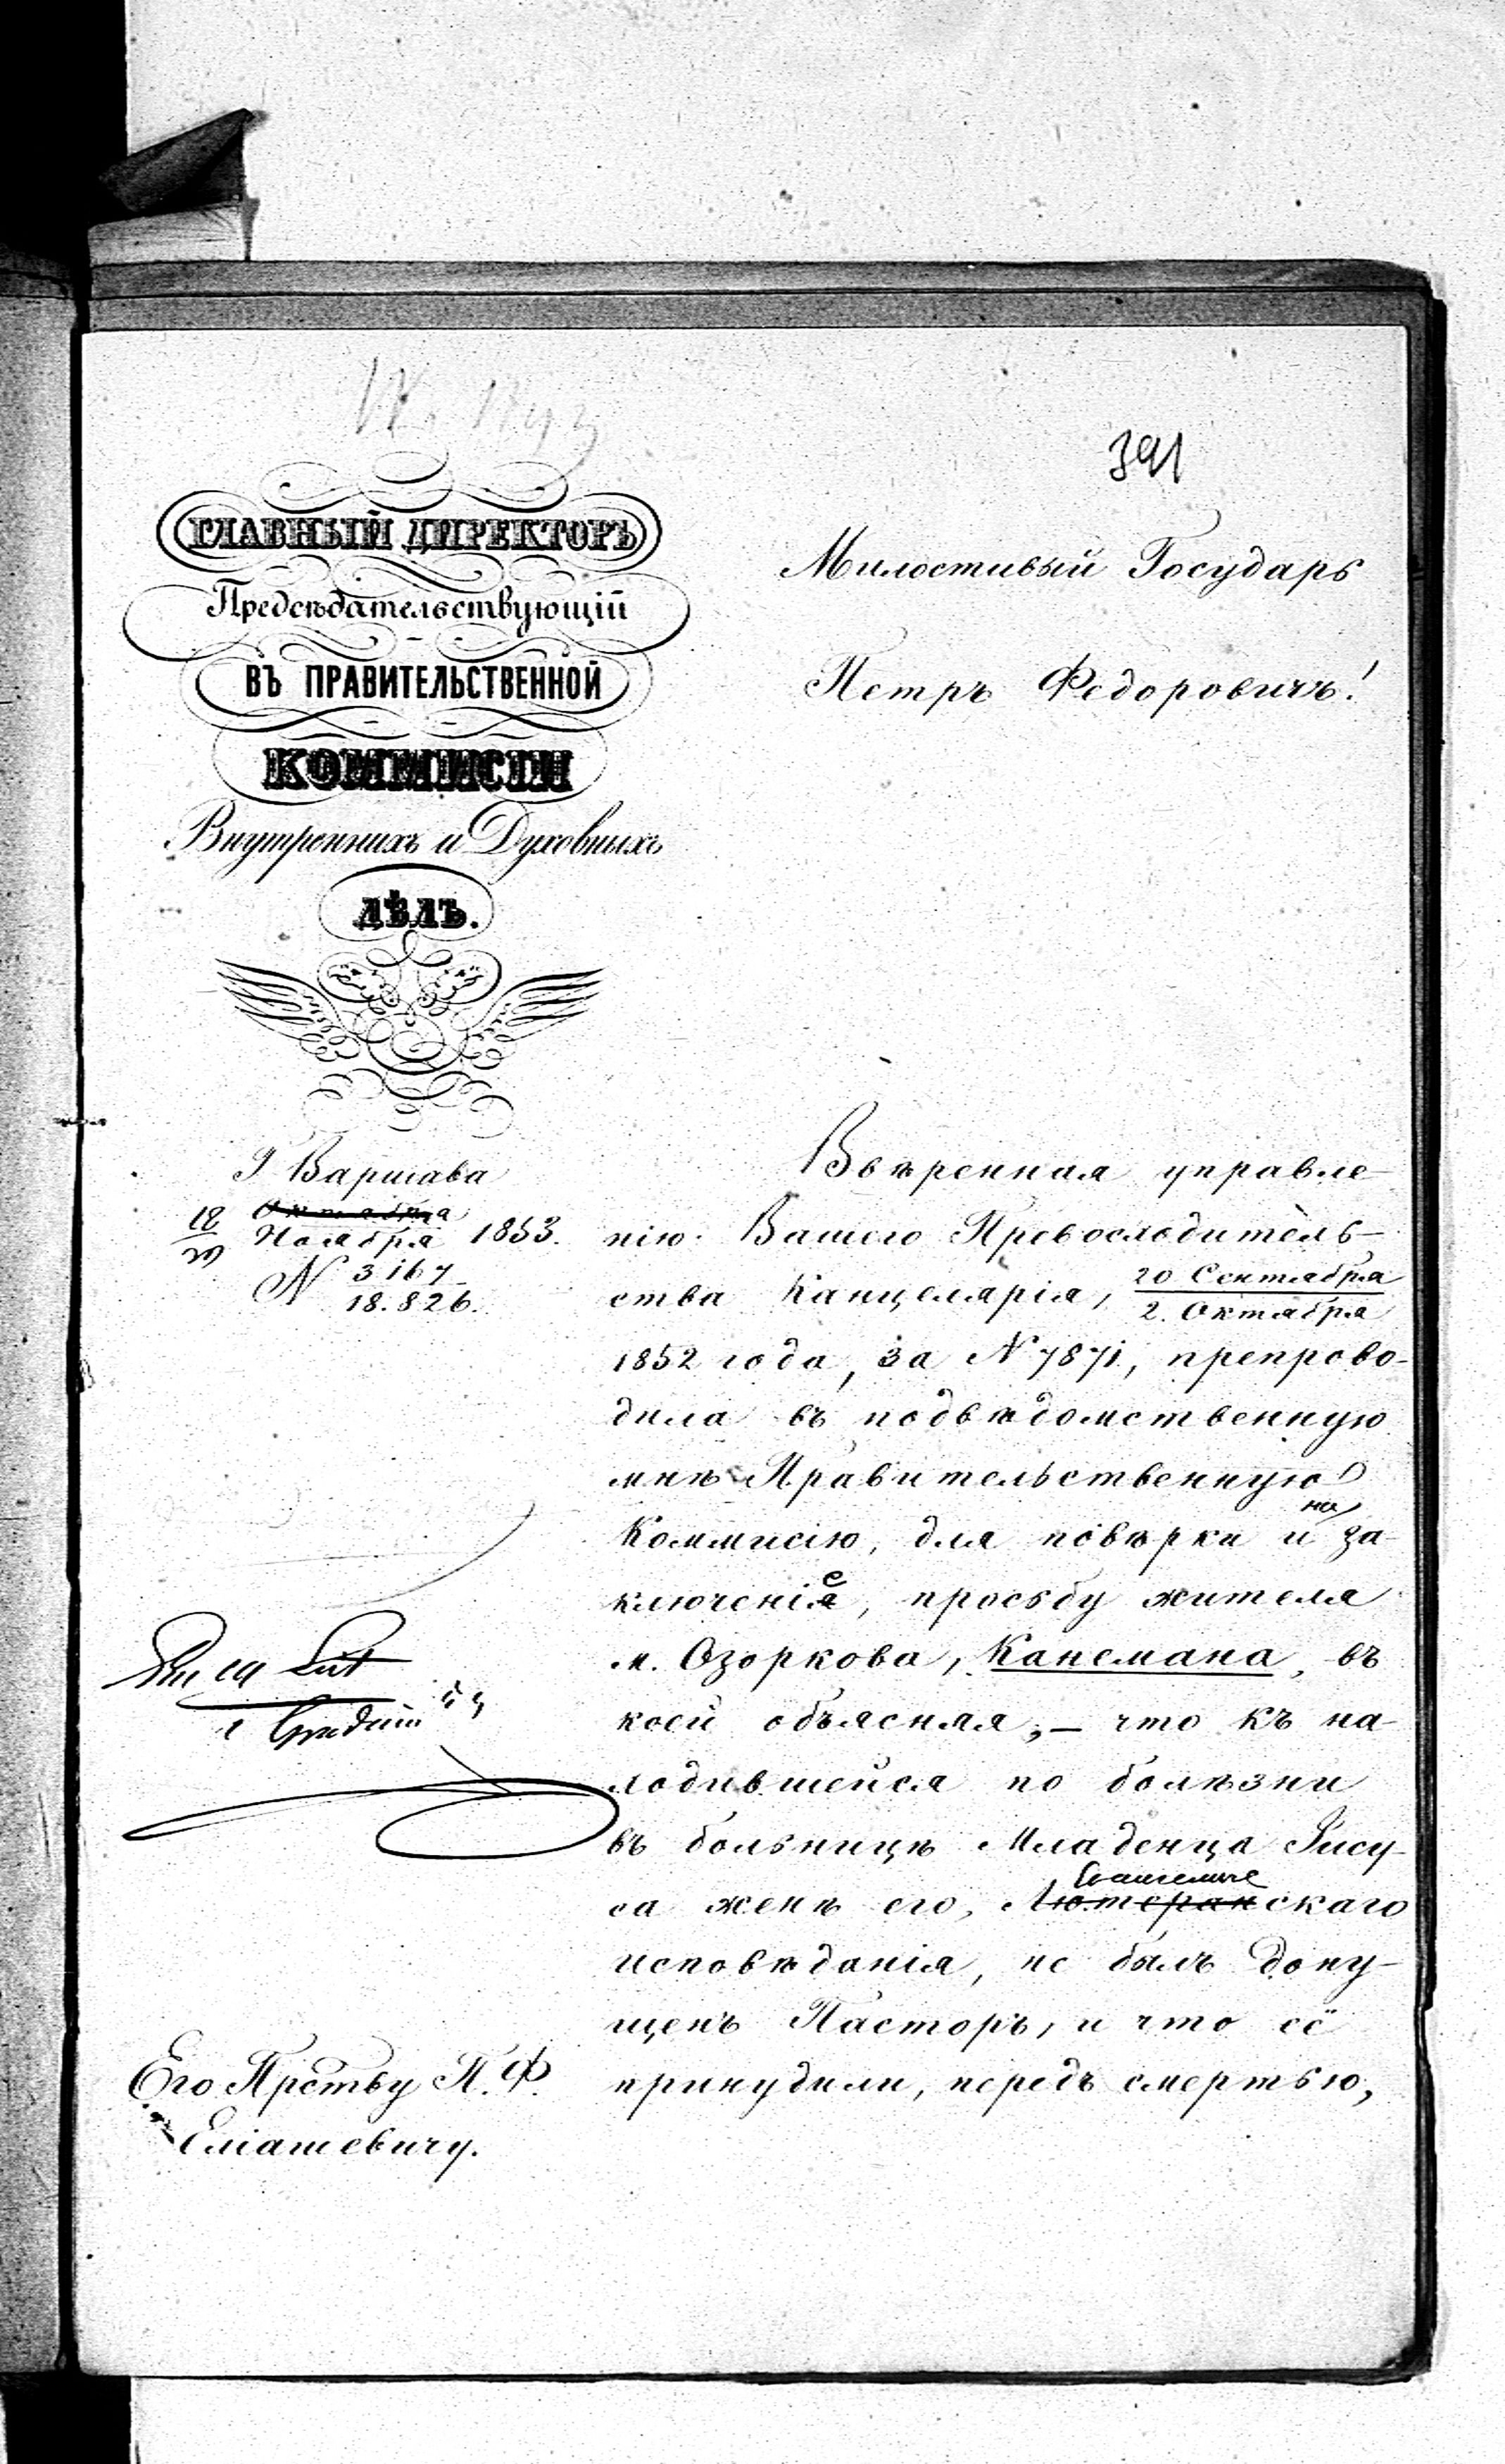 391
ГЛАВНЫЙ ДИРЕКТОРЪ
Предсѣдательствующій
ВЪ ПРАВИТЕЛЬСТВЕННОЙ
КОММИСІИ
Внутреннихъ и Духовныхъ
ДѢЛЪ.
Милостивый Государь
Петръ Федоровичъ!
Г Варшава
Октября
Ноября 1853.
N 3167
18.826.
Ввѣренная управле-
нію Вашего Превосходитель-
ства Канцелярія, 20 Сентября
2. Октября
1852 года, за N 7871, препрово-
дила въ подвѣдомственную
мнѣ Правительственную
Коммисію, для повѣрки и на за-
ключеніе, просьбу жителя
м. Озоркова, Канемана, въ
коей объясняя, – что къ на-
ходившейся по болѣзни
въ больницѣ Младенца Іису-
са женѣ его, Евангеличе
Лютеранскаго
исповѣданія, не былъ допу-
щенъ Пасторъ, и что её
принудили, передъ смертью,
Его Прству П. Ф.
Еліашевичу.